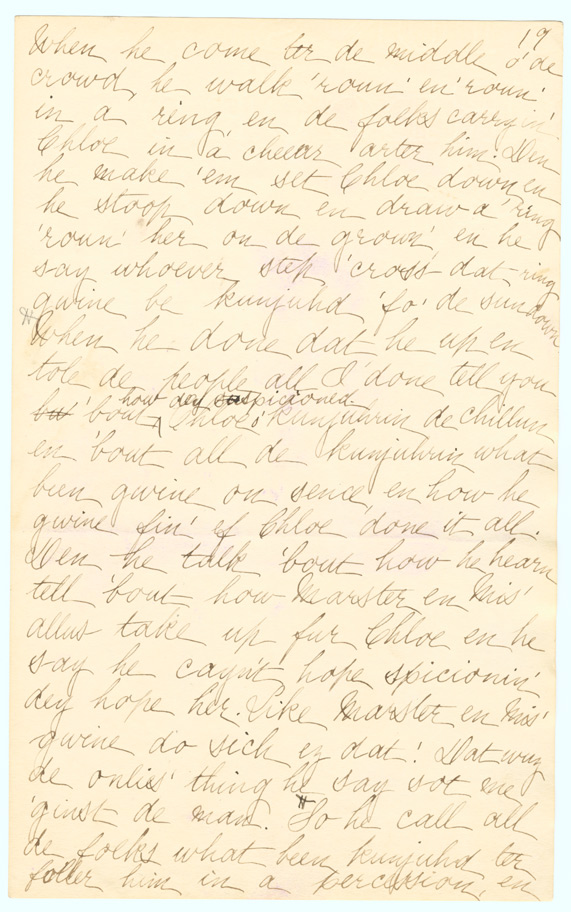 19
When he come ter de middle o' de
crowd, he walk 'roun' en 'roun'
in a ring en de folks carryin'
Chloe in a cheear arter him. Den
he make 'em set Chloe down en
he stoop down en draw a ring
'roun' her on de groun', en he
say whoever step 'cross dat ring
gwine be kunjuhd 'fo' de sundown
When he done dat he up en
tole de people all I done tell you
how dey suspicioned
but 'bout Chloe kunjuhrin de chillun
en 'bout all de kunjuhrin what
been gwine on sence, en how he
gwine fin' ef Chloe done it all.
Den he talk 'bout how he hearn
tell 'bout how Marster en Mis'
allus take up fur Chloe en he
say he cayn't hope spicionin'
dey hope her. Like Marster en Mis'
gwine do sich ez dat! Dat wuz
de onlies' thing he say sot me
'ginst de man. So he call all
de folks what been kunjuhd ter
foller him in a percession, en